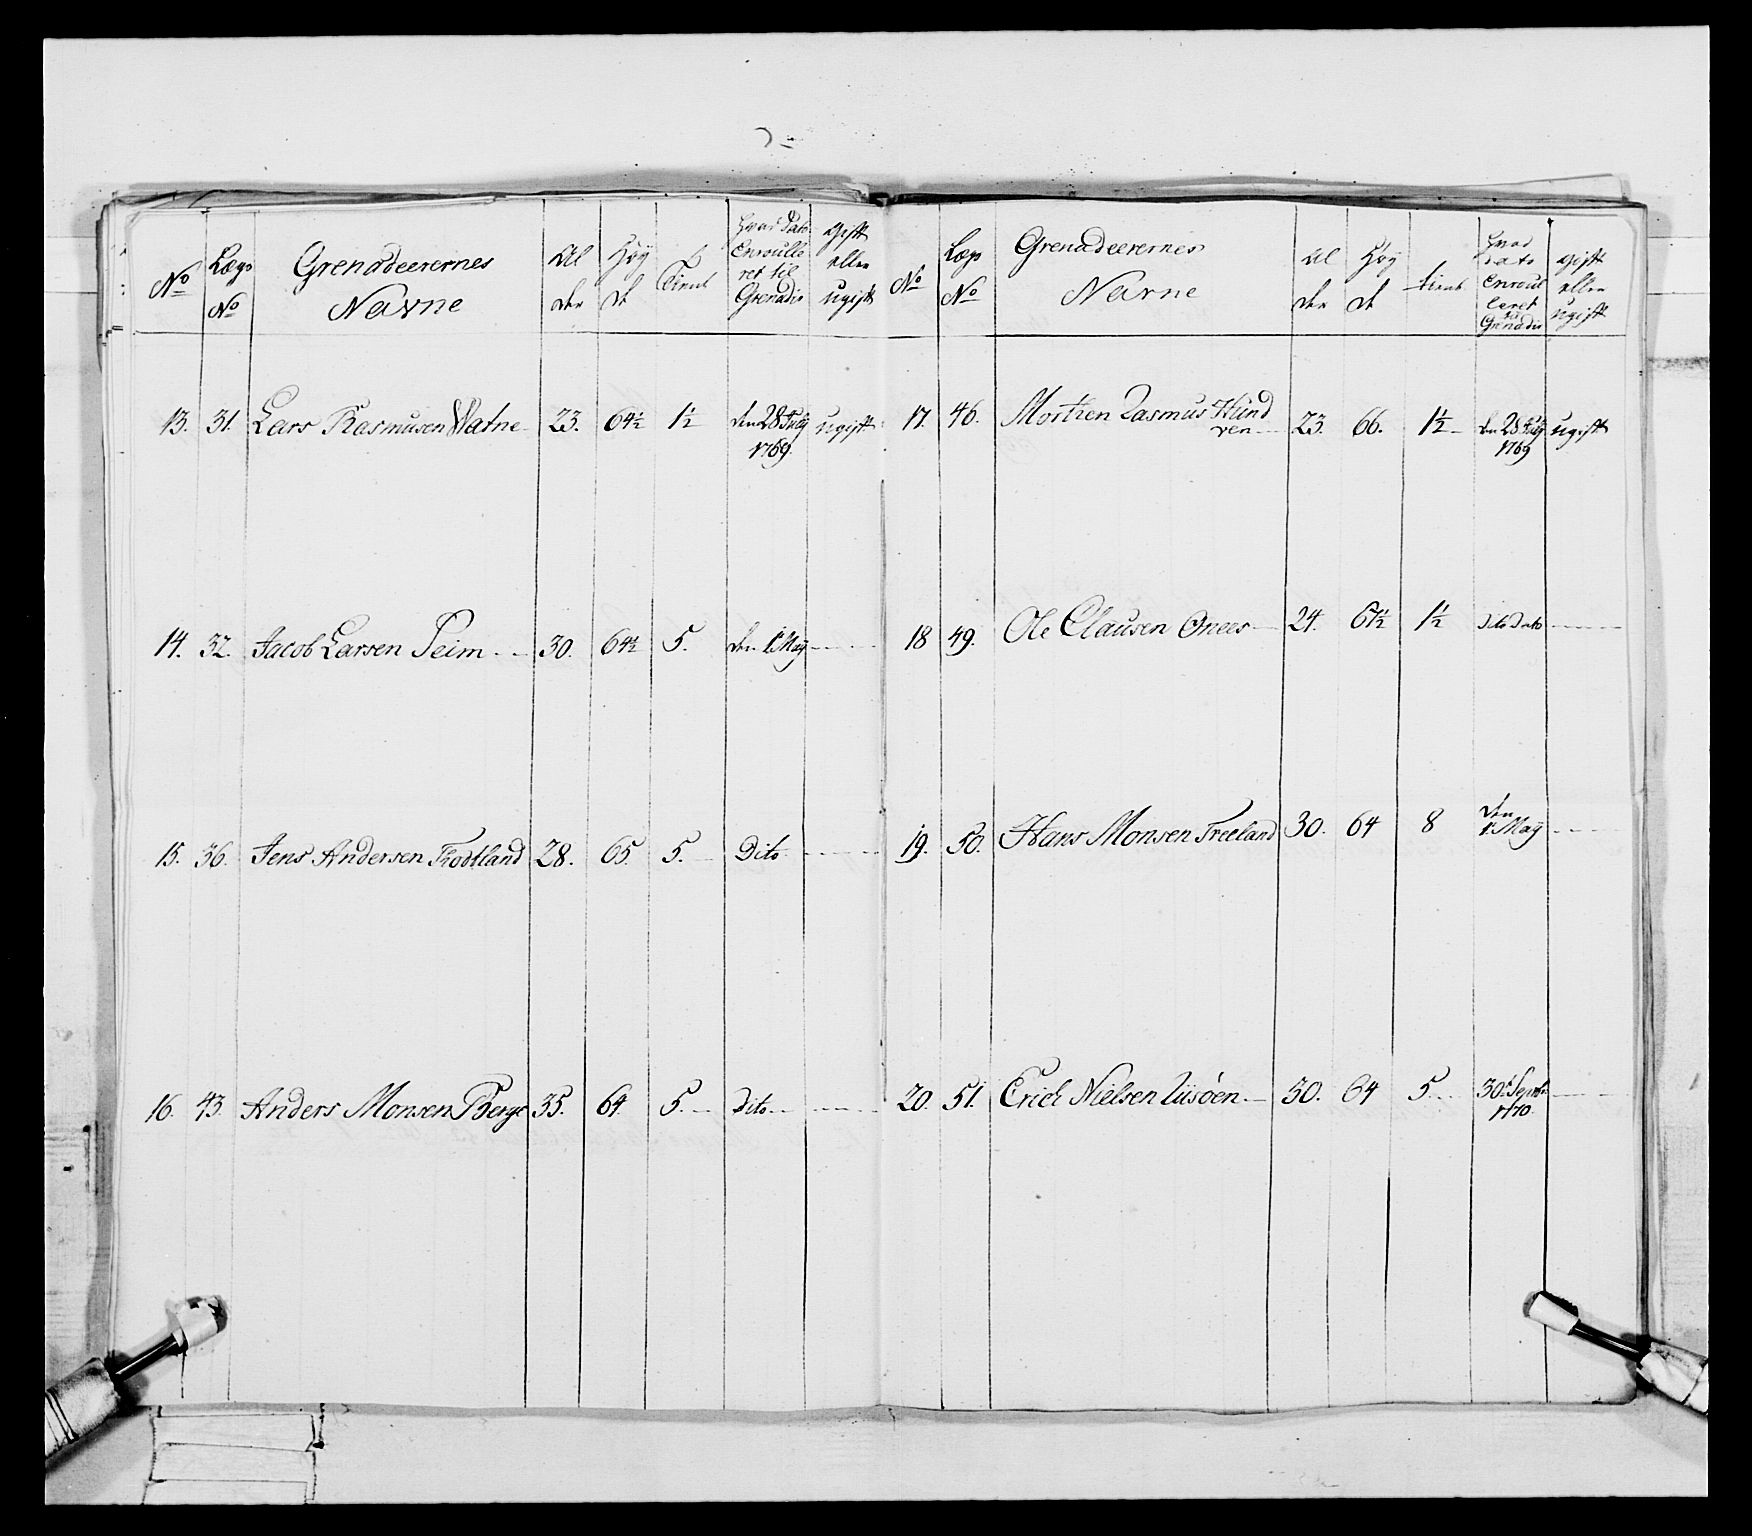 No
Lægs
No
Grenadeerernes
Navne
Al
der
Høy
de
Tient
Hvad Dato
Enroulle
ret til
Grenadir
Gift
eller
ugift
13. 31. Lars Rasmusen Watne 23. 64½ 1½ den 28 July ugift
1769.
14. 32. Jacob Larsen Seim 30. 64½ 5. den 1 May
15. 36. Jens Andersen Trodtland 28. 65. 5. Dito
16. 43. Anders Monsen Berge 35. 64. 5. Dito
No
Lægs
No
Grenadeerernes
Navne
Al
der
Høy
de
tient
hvad
dato
enroul
leret
til
Grenadir
gift
eller
ugift
17. 46. Morthen Rasmus Hund 23. 66. 1½ den 28 July ugift
ven
1769
18 49. Ole Clausen Onees 24. 67½ 1½ dito Dato
19. 50. Hans Monsen Treeland 30. 64 8 den
1 May
20. 51. Erich Nielsen Liisøen 30. 64 5. 30. Septbr
1770.